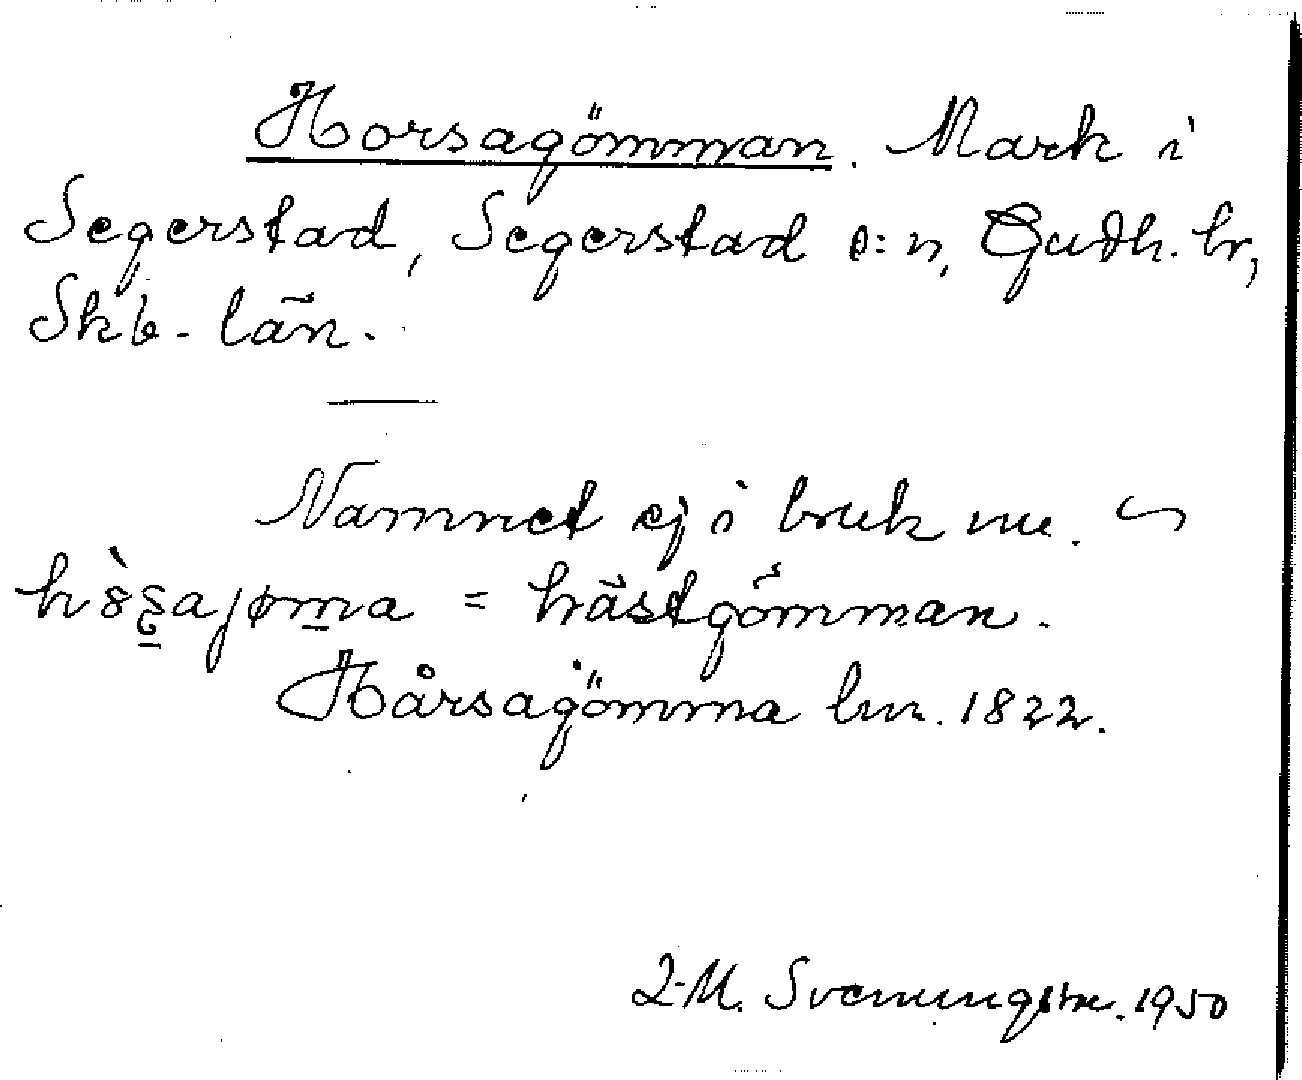 Horsagömman. Mark i
Segerstad, Segerstad s:n, Gudh. hr,
Skb. län.
Namnet ej i bruk nu. ∽
= hästgömman.
Hårsagömma lm. 1822.
Svenungss:n. 1950